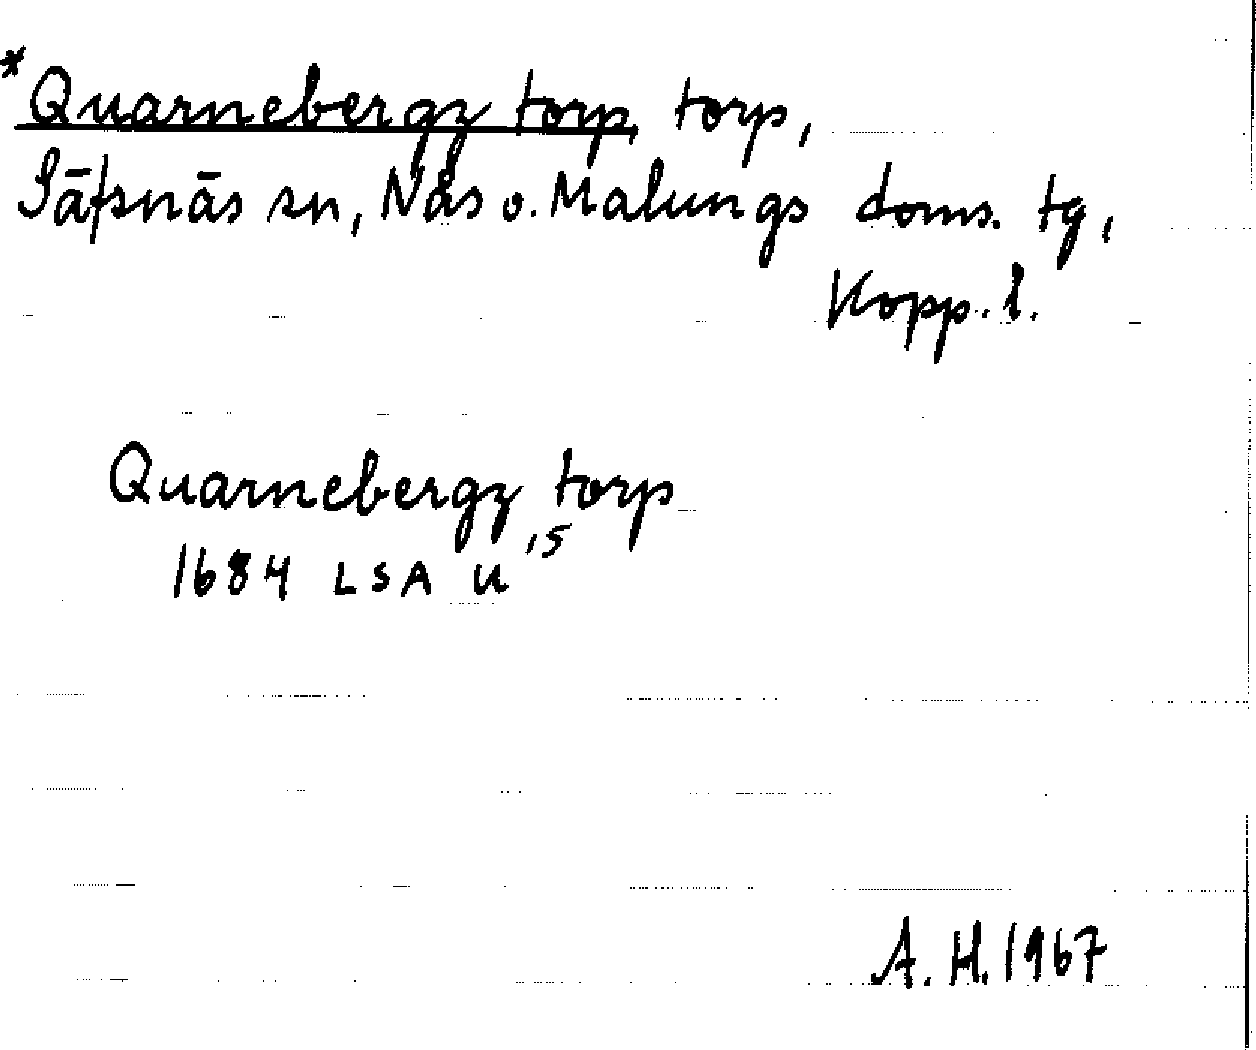 *Quarnebergz torp, torp,
Säfsnäs sn, Nås o. Malungs doms. tg,
Kopp. l.
Quarnebergz torp
1684 LSA U 15
A. H. 1967